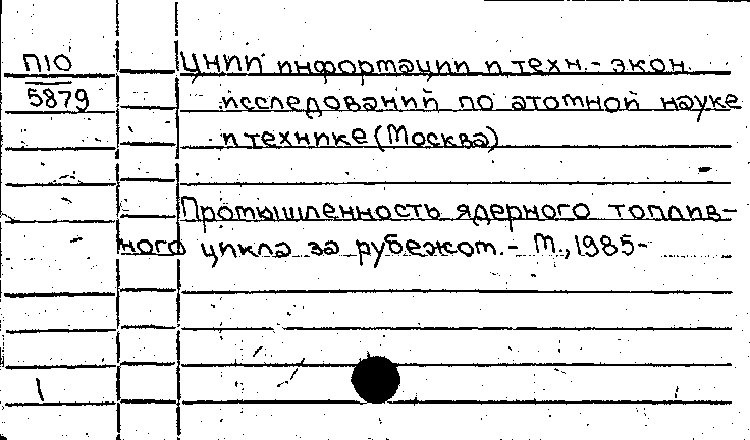 П10
5879
ЦНИИ информации и техн.- экон.
исследований по атомной науке
и технике (Москва)
Промышленность ядерного топлив-
ного цикла за рубежом. - М., 1985-